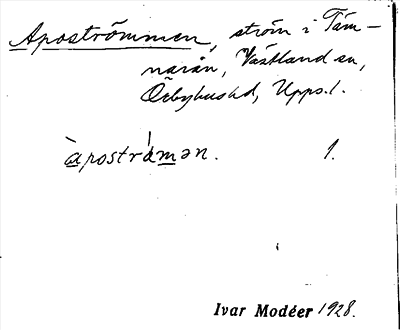 Apoströmmen, ström i Täm-
narån, Västland sn,
Örbyhus hd, Upps. l.
àpostrámən. 1.
Ivar Modéer 1928.